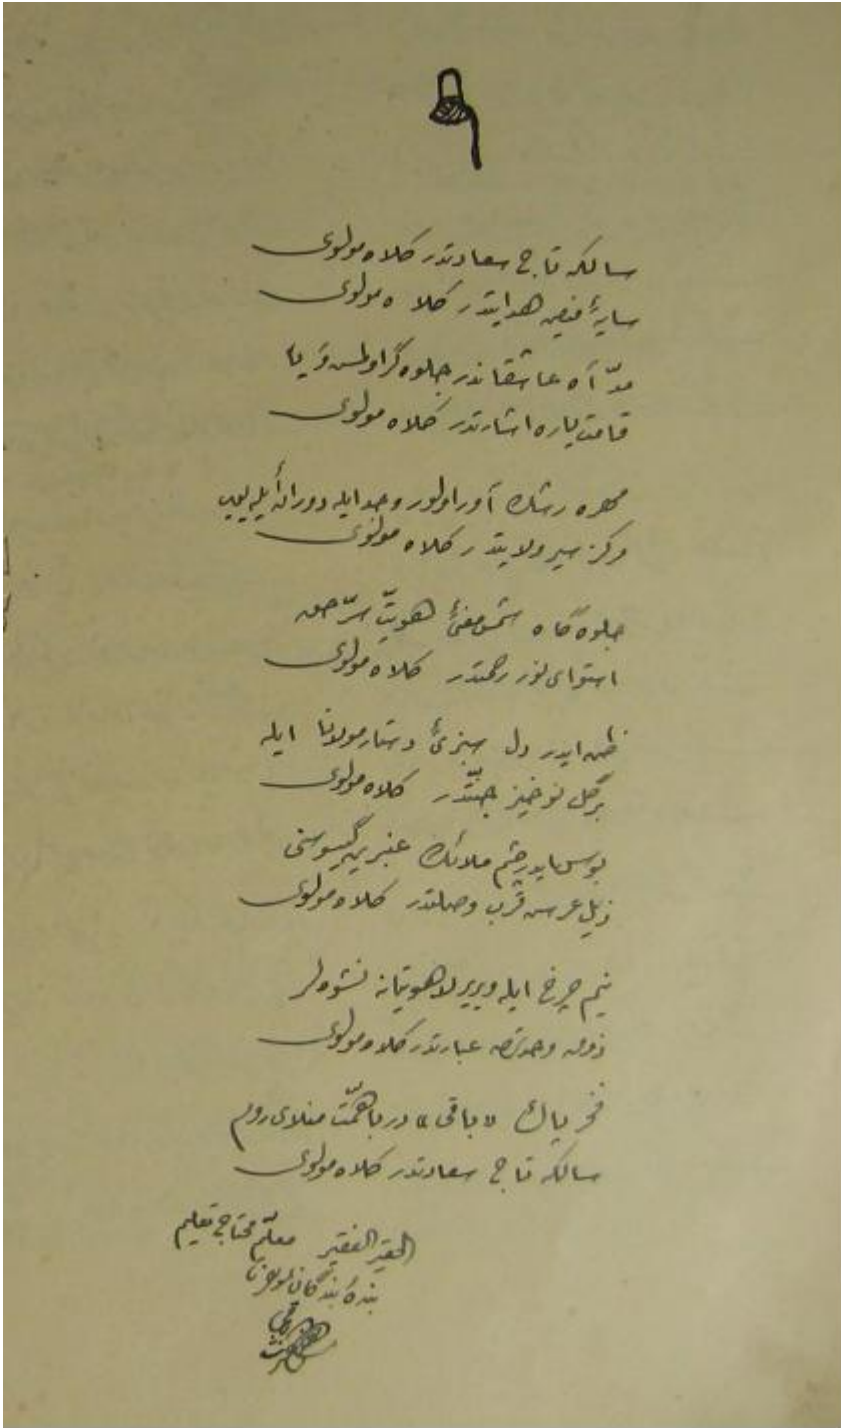 سالكه تاج سعادتدر كلاه مولوی
سایۀ فیض هدایتدر كلاه مولوی
مدّ آه عاشقاندر جلوه گر اولمس
قامت یاره اشارتدر كلاه مولوی
مهره رشك آور اولور وجد ایله دوران ایله ییب
مركز سیر ولایتدر كلاه مولوی
جلوه گاه شمس معنئ هویّت سرّ حق
استوای نور رحمتدر كلاه مولوی
ظن ایدر دل سبزئ دستار مولانا ایله
برگل نوخیز جنّتدر كلاه مولوی
بوس ایدر چشم ملائك عنبرین گیسوسنی
ذیل عرس قرب وصلتدر كلاه مولوی
نیم چرخ ایله ویریر لاهوتیانه نشوه لر
ذوق وحدتدن عبارتدر كلاه مولوی
فخر پاك «باقی» در باهمّت منلای روم
سالكه تاج سعادتدر كلاه مولوی
الحقیر الفقیر معلّم محتاج تعلیم
بندۀ بندگان